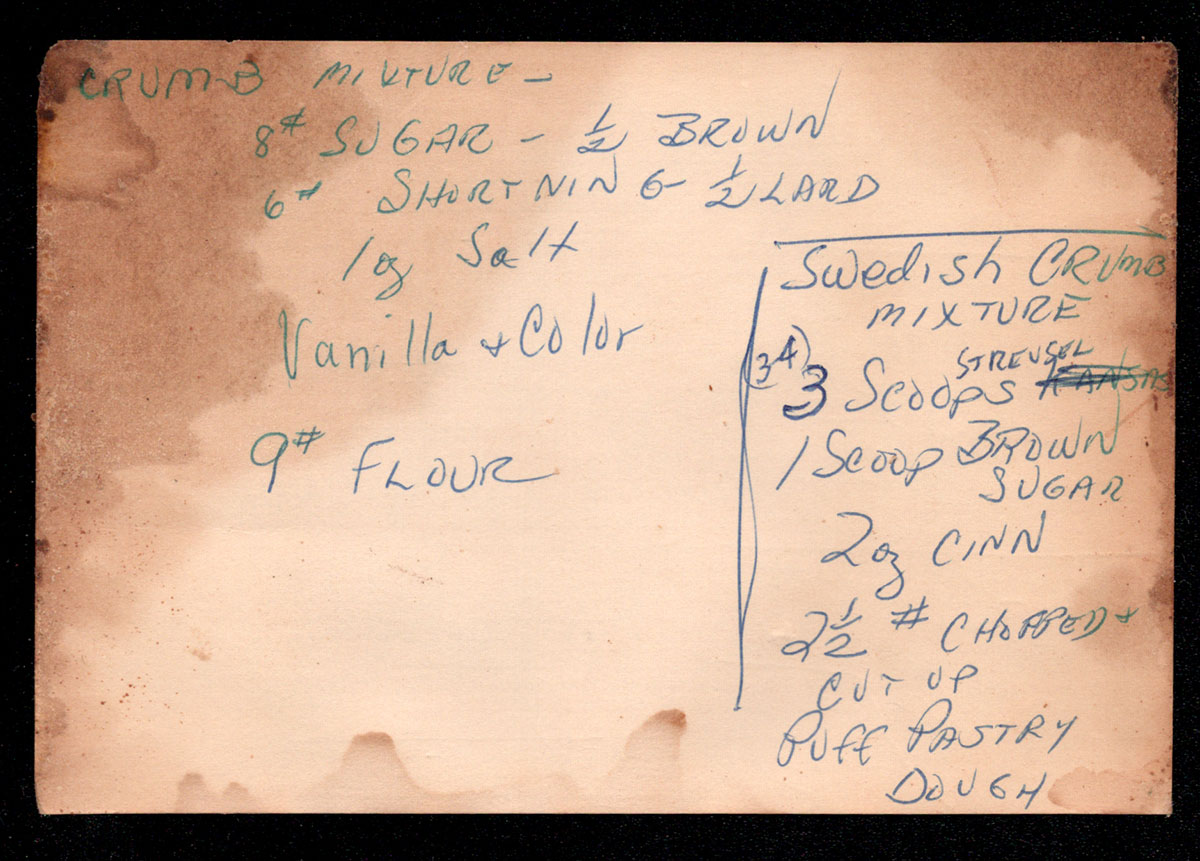 CRUMB MIXTURE -
8# SUGAR - ½ BROWN
6# SHORTNING ½ LARD
1 oz Salt
Vanilla & Color
9# FLOUR
Swedish CRUMB
MIXTURE
(34)
STREUSEL
3 SCOOPS KANSAS
1 SCOOP BROWN
SUGAR
2 oz CINN
2½ # CHOPPED &
CUT UP
PUFF PASTRY
DOUGH